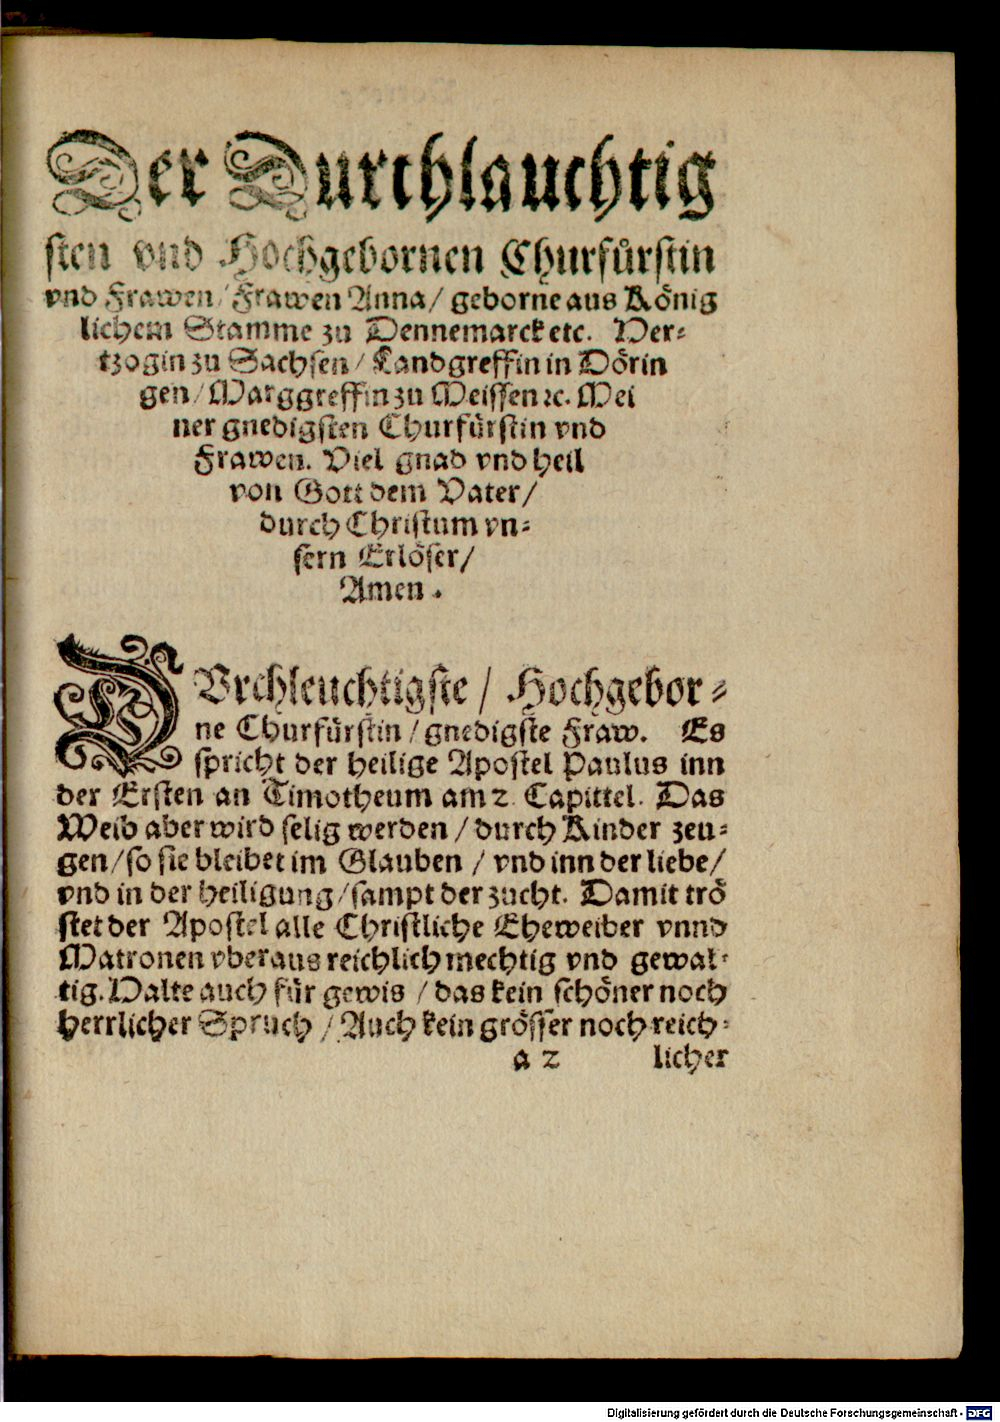 Der Durchlauchtig
sten vnd Hochgebornen Churfuͤrstin
vnd Frawen / Frawen Anna / geborne aus Koͤnig
lichem Stamme zu Dennemarck etc. Her-
tzogin zu Sachsen / Landgreffin in Doͤrin
gen / Marggreffin zu Meissen ꝛc. Mei
ner gnedigsten Churfuͤrstin vnd
Frawen. Viel gnad vnd heil
von Gott dem Vater /
durch Christum vn-
sern Erloͤser /
Amen.
DVrchleuchtigste / Hochgebor-
ne Churfuͤrstin / gnedigste Fraw. Es
spricht der heilige Apostel Paulus inn
der Ersten an Timotheum am 2. Capittel. Das
Weib aber wird selig werden / durch Kinder zeu-
gen / so sie bleibet im Glauben / vnd inn der liebe /
vnd in der heiligung / sampt der zucht. Damit troͤ
stet der Apostel alle Christliche Eheweiber vnnd
Matronen vberaus reichlich mechtig vnd gewal-
tig. Halte auch fuͤr gewis / das kein schoͤner noch
herrlicher Spruch / Auch kein groͤsser noch reich-
a 2 licher
Digitalisierung gefördert durch die Deutsche Forschungsgemeinschaft - DFG